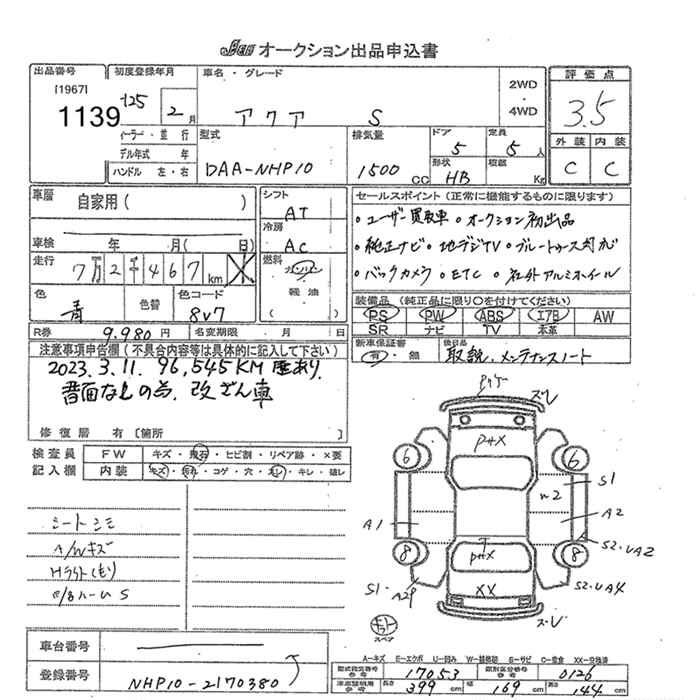 JBA オークション出品申込書
出品番号
[1967]
1139
初度登録年月
'25 2 月
ィーラー・並行
デル年式 年
ハンドル 左・右
車名・グレード
アクア S
2WD
・
4WD
型式
DAA-NHP10
排気量
1500 cc
ドア
5
定員
5 人
形状
HB
積載
Kg
評価点
3.5
外装 内装
C C
車歴
自家用( )
車検 年 月( 日)
走行
7万2千467 km
色
青
色替
色コード
8V7
シフト
AT
冷房
AC
燃料
ガソリン
軽油
( )
R券 9,980 円 名変期限 月 日
セールスポイント(正常に機能するものに限ります)
・ユーザー買取車 ・オークション初出品
・純正ナビ ・地デジTV ・ブルートゥース対応
・バックカメラ ・ETC ・社外アルミホイール
装備品(純正品に限り○を付けてください)
PS PW ABS エアB AW
SR ナビ TV 本革
新車保証書
有・無
後日品
取説、メンテナンスノート
注意事項申告欄(不具合内容等は具体的に記入して下さい)
2023.3.11. 96,545KM 歴あり.
書面なしの為. 改ざん車
修復歴 有〔箇所
検査員 FW キズ・飛石・ヒビ割・リペア跡・×要
記入欄 内装 キズ・汚れ・コゲ・穴・スレ・キレ・破レ
シートシミ
A/Wキズ
Hライトくもり
S
P×X
6
6
S1
W2
A1
A2
S2・UA2
8
8
P×X
S1・A2
XX
S2・UA4
ズレ
ズレ
スペア
車台番号
登録番号
NHP10-2170380
A―キズ E―エクボ U―凹み W―補修跡 S―サビ C―腐食 XX―交換済
型式指定番号
参考
17053
類別区分番号
参考
0126
車庫証明用
参考
長さ
399 cm
幅
169 cm
高さ
144 cm